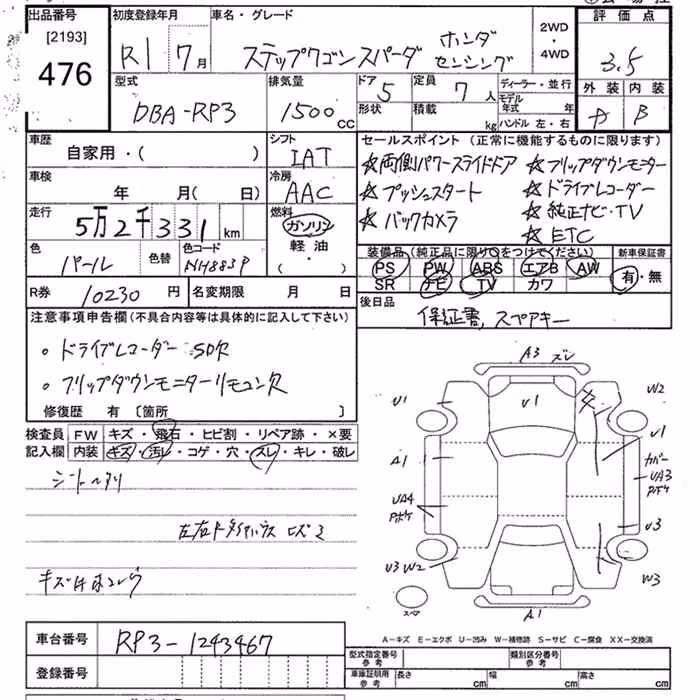 出品番号
[2193]
476
初度登録年月
R1 7月
車名・グレード
ステップワゴン スパーダ ホンダ センシング
2WD
・
4WD
評価点
3.5
外装 内装
A B
型式
DBA-RP3
排気量
1500 cc
ドア
5
定員
7 人
形状
積載
kg
ディーラー・並行
モデル年式 年
ハンドル 左・右
車歴
自家用・( )
シフト
IAT
車検
年 月( 日)
冷房
AAC
走行
5万2千331 km
燃料
ガソリン
軽油
・( )
色
パール
色替
色コード
NH883P
R券 10230 円
名変期限 月 日
セールスポイント(正常に機能するものに限ります)
☆両側パワースライドドア ☆フリップダウンモニター
☆プッシュスタート ☆ドライブレコーダー
☆バックカメラ ☆純正ナビ・TV
☆ETC
装備品(純正品に限り○をつけてください)
PS PW ABS エアB AW
SR ナビ TV カワ
新車保証書
有・無
後日品
保証書, スペアキー
注意事項申告欄(不具合内容等は具体的に記入して下さい)
・ドライブレコーダー SD欠
・フリップダウンモニターリモコン欠
修復歴 有 〔箇所 〕
検査員 FW キズ・飛石・ヒビ割・リペア跡・×要
記入欄 内装 キズ・汚レ・コゲ・穴・スレ・キレ・破レ
A3 ズレ
U1
U1
W2
A1
U1
カバー
UA3
Pボケ
UA4
Pボケ
U3
U3 W2
W3
スペア
A1
A-キズ E-エクボ U-凹み W-補修跡 S-サビ C-腐食 XX-交換済
車台番号 RP3-1243467
登録番号
型式指定番号
参考
類別区分番号
参考
車庫証明用
参考
長さ cm
幅 cm
高さ cm